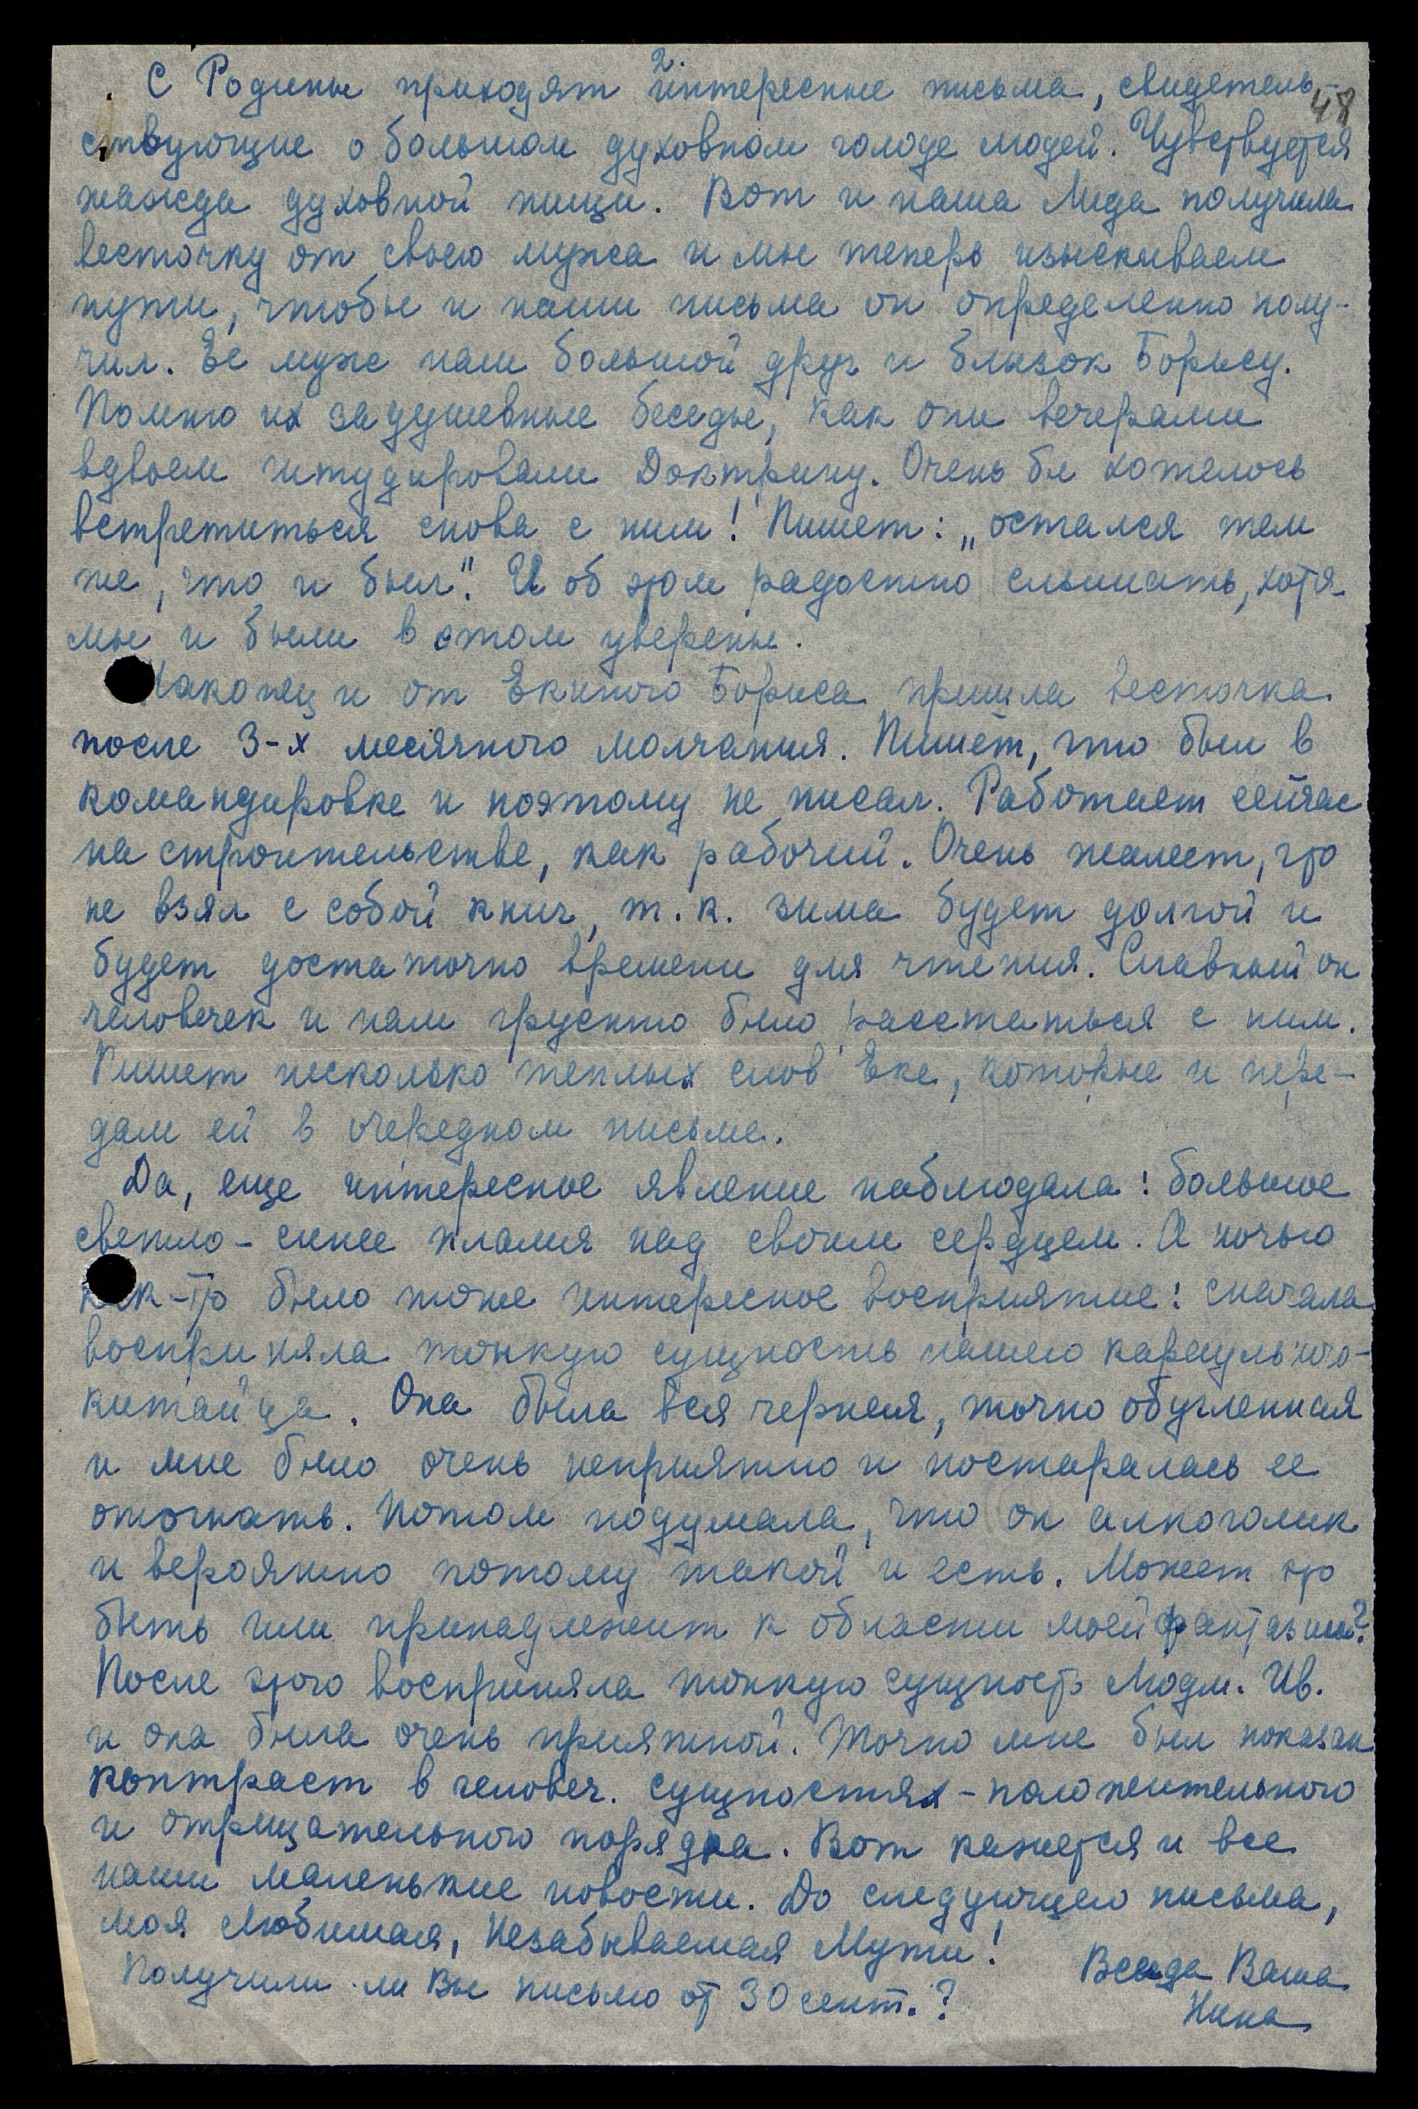 2.
48
С Родины приходят интересные письма, свидетель-
ствующие о большом духовном голоде людей. Чувствуется
жажда духовной пищи. Вот и наша Лида получила
весточку от своего мужа и мы теперь изыскиваем
пути, чтобы и наши письма он определенно полу-
чил. Её муж наш большой друг и близок Борису.
Помню их задушевные беседы, как они вечерами
вдвоем штудировали Доктрину. Очень бы хотелось
встретиться снова с ним! Пишет: „остался тем
же, что и был". И об этом радостно слышать, хотя
мы и были в этом уверены.
Наконец и от Екиного Бориса пришла весточка
после 3-х месячного молчания. Пишет, что был в
командировке и поэтому не писал. Работает сейчас
на строительстве, как рабочий. Очень жалеет, что
не взял с собой книг, т.к. зима будет долгой и
будет достаточно времени для чтения. Славный он
человечек и нам грустно было расстаться с ним.
Пишет несколько теплых слов Еке, которые и пере-
дам ей в очередном письме.
Да, еще интересное явление наблюдала: большое
светло-синее пламя над своим сердцем. А ночью
как-то было тоже интересное восприятие: сначала
восприняла тонкую сущность нашего караульного-
китайца. Она была вся черная, точно обугленная
и мне было очень неприятно и постаралась ее
отогнать. Потом подумала, что он алкоголик
и вероятно потому такой и есть. Может это
быть или принадлежит к области моей фантазии?
После этого восприняла тонкую сущность Людм. Ив.
и она была очень приятной. Точно мне был показан
контраст в человеч. сущностях - положительного
и отрицательного порядка. Вот кажется и все
наши маленькие новости. До следующего письма,
моя Любимая, Незабываемая Мути!
Всегда Ваша
Нина
Получили ли Вы письмо от 30 сент.?